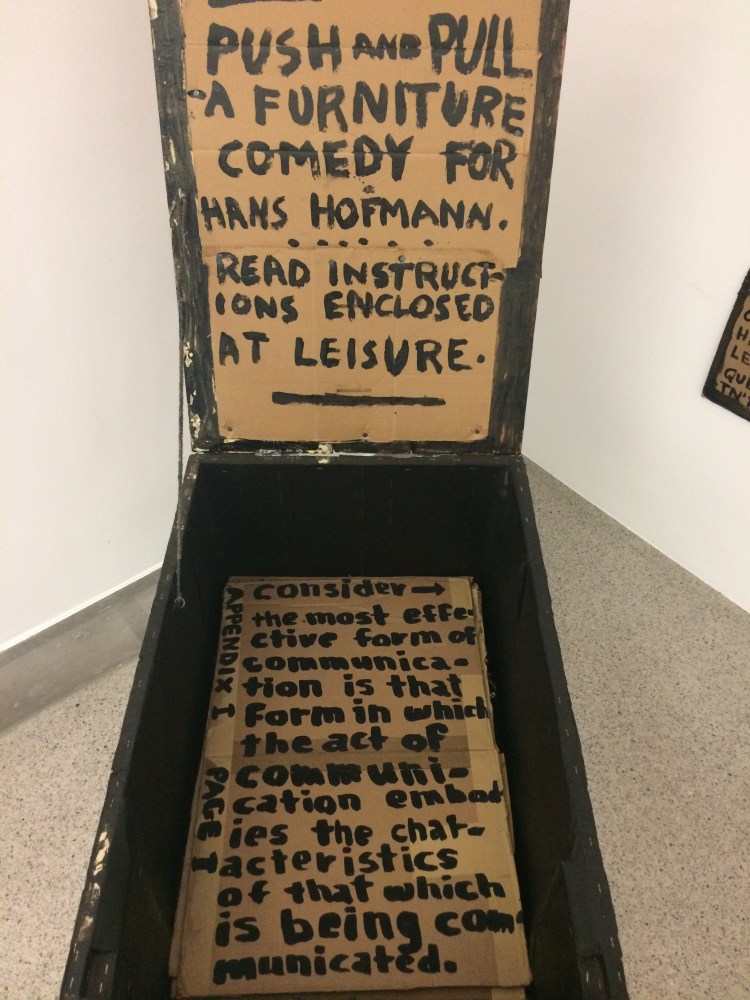 PUSH AND PULL
A FURNITURE
COMEDY FOR
HANS HOFMANN.
READ INSTRUCT-
IONS ENCLOSED
AT LEISURE.
APPENDIX I PAGE I
consider→
the most effe-
ctive form of
communica-
tion is that
form in which
the act of
communi-
cation embod
ies the char-
acteristics
of that which
is being com-
municated.
LE
QU